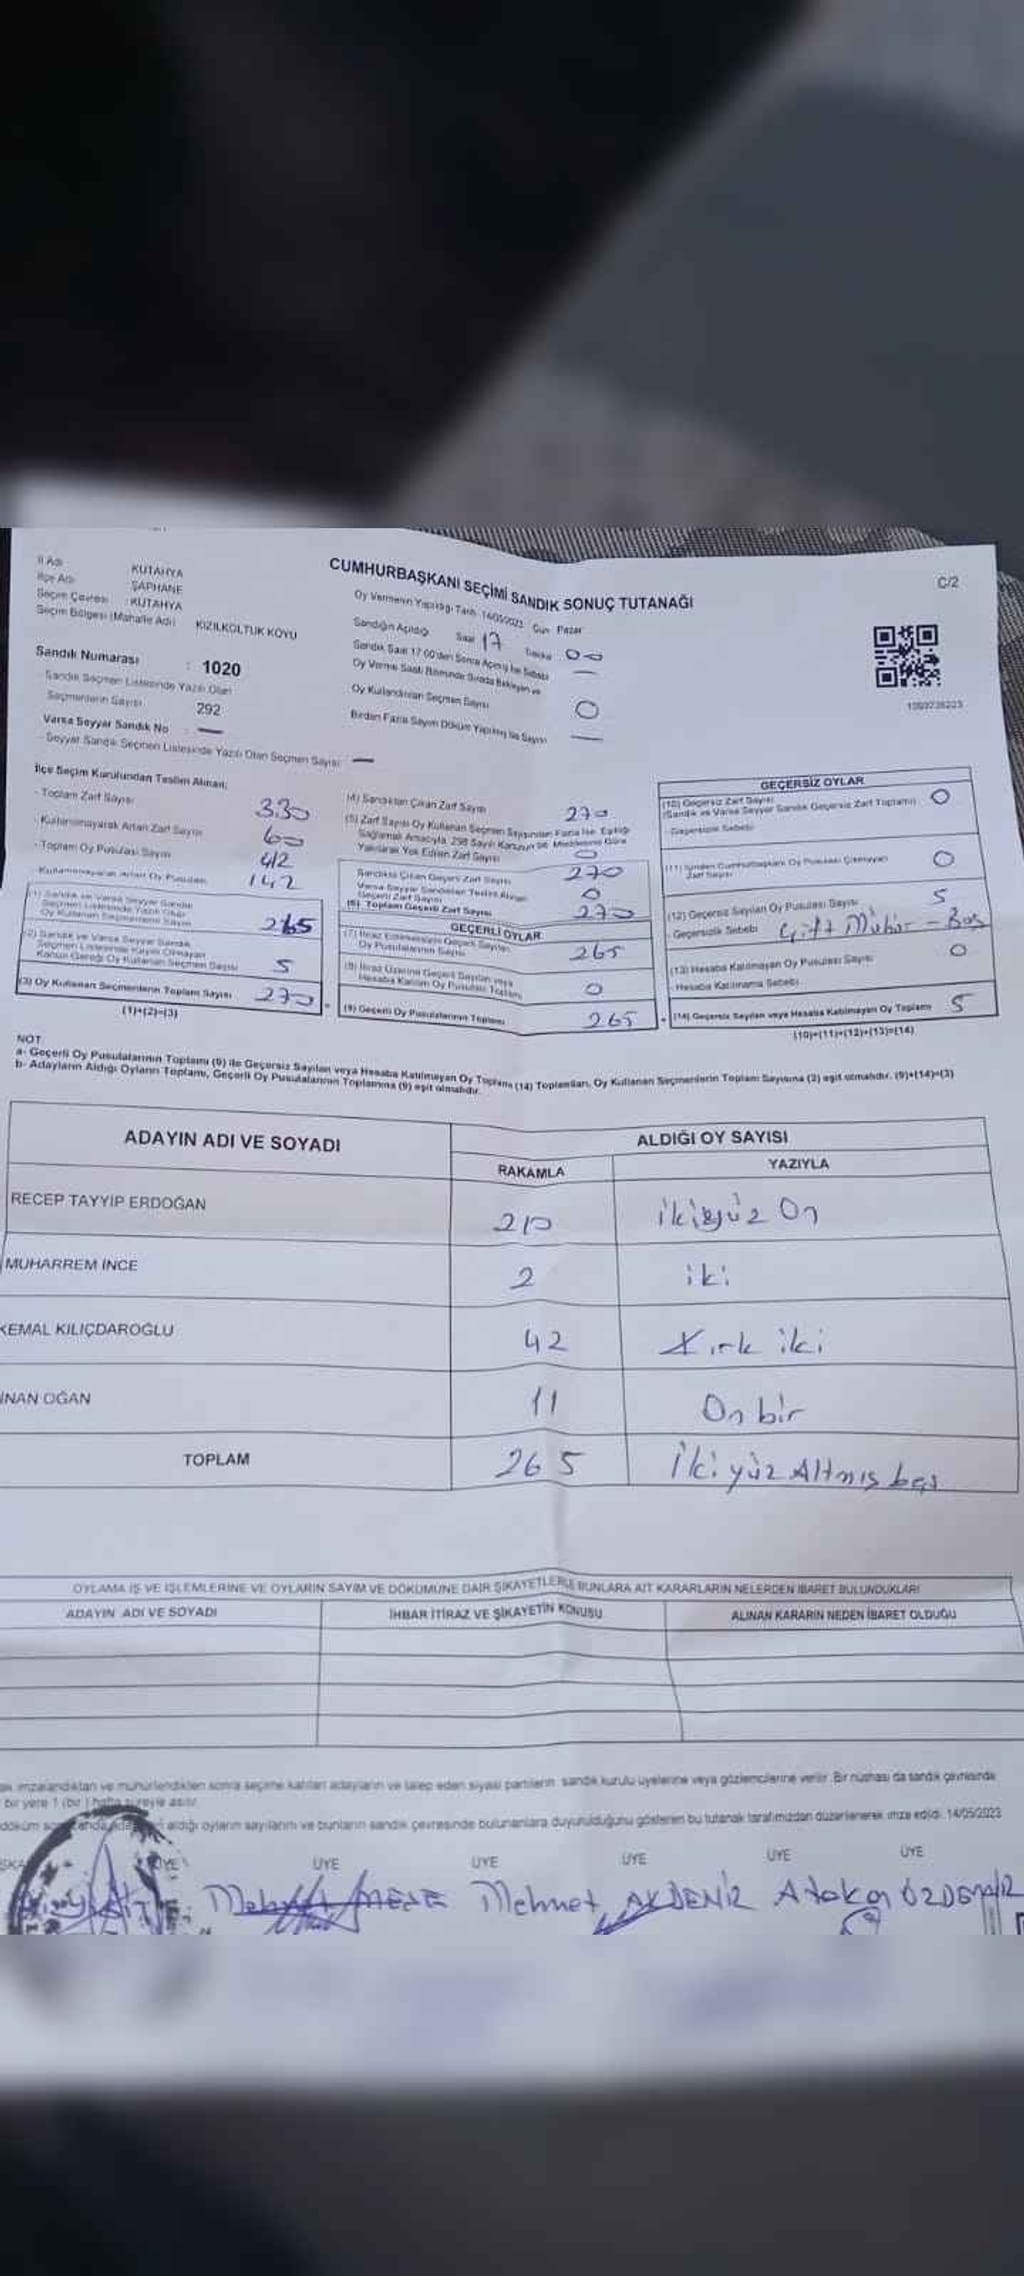 CUMHURBAŞKANI SEÇİMİ SANDIK SONUÇ TUTANAĞI
C/2
İl Adı KUTAHYA
İlçe Adı ŞAPHANE
Seçim Çevresi : KUTAHYA
Seçim Bölgesi (Mahalle Adı) KIZILKOLTUK KOYU
Sandık Numarası : 1020
Sandık Seçmen Listesinde Yazılı Olan
Seçmenlerin Sayısı 292
Varsa Seyyar Sandık No : —
Seyyar Sandık Seçmen Listesinde Yazılı Olan Seçmen Sayısı : —
Oy Vermenin Yapıldığı Tarih 14/05/2023 Gün Pazar
Sandığın Açıldığı Saat 17 Dakika 00
Sandık Saat 17 00'den Sonra Açılmış İse Sebebi —
Oy Verme Saati Bitiminde Sırada Bekleyen ve
Oy Kullandırılan Seçmen Sayısı 0
Birden Fazla Sayım Döküm Yapılmış İse Sayısı —
İlçe Seçim Kurulundan Teslim Alınan;
- Toplam Zarf Sayısı 330
- Kullanılmayarak Artan Zarf Sayısı 60
- Toplam Oy Pusulası Sayısı 412
- Kullanılmayarak Artan Oy Pusulası 142
(1) Sandık ve Varsa Seyyar Sandık
Seçmen Listesinde Yazılı Olup
Oy Kullanan Seçmenlerin Sayısı 265
(2) Sandık ve Varsa Seyyar Sandık
Seçmen Listesinde Kayıtlı Olmayan
Kanun Gereği Oy Kullanan Seçmen Sayısı 5
(3) Oy Kullanan Seçmenlerin Toplam Sayısı 270
(1)+(2)=(3)
(4) Sandıktan Çıkan Zarf Sayısı 270
(5) Zarf Sayısı Oy Kullanan Seçmen Sayısından Fazla İse, Eşitliği
Sağlamak Amacıyla, 298 Sayılı Kanunun 98. Maddesine Göre
Yakılarak Yok Edilen Zarf Sayısı 0
Sandıkta Çıkan Geçerli Zarf Sayısı 270
Varsa Seyyar Sandıktan Teslim Alınan
Geçerli Zarf Sayısı 0
(6) Toplam Geçerli Zarf Sayısı 270
GEÇERLİ OYLAR
(7) İtiraz Edilmeksizin Geçerli Sayılan
Oy Pusulalarının Sayısı 265
(8) İtiraz Üzerine Geçerli Sayılan veya
Hesaba Katılan Oy Pusulası Toplamı 0
(9) Geçerli Oy Pusulalarının Toplamı 265
GEÇERSİZ OYLAR
(10) Geçersiz Zarf Sayısı
(Sandık ve Varsa Seyyar Sandık Geçersiz Zarf Toplamı) 0
- Geçersizlik Sebebi
(11) İçinden Cumhurbaşkanı Oy Pusulası Çıkmayan
Zarf Sayısı 0
(12) Geçersiz Sayılan Oy Pusulası Sayısı 5
- Geçersizlik Sebebi Çift Mühür - Boş
(13) Hesaba Katılmayan Oy Pusulası Sayısı 0
- Hesaba Katılmama Sebebi
(14) Geçersiz Sayılan veya Hesaba Katılmayan Oy Toplamı 5
(10)+(11)+(12)+(13)=(14)
NOT
a- Geçerli Oy Pusulalarının Toplamı (9) ile Geçersiz Sayılan veya Hesaba Katılmayan Oy Toplamı (14) Toplamları, Oy Kullanan Seçmenlerin Toplam Sayısına (3) eşit olmalıdır. (9)+(14)=(3)
b- Adayların Aldığı Oyların Toplamı, Geçerli Oy Pusulalarının Toplamına (9) eşit olmalıdır.
ADAYIN ADI VE SOYADI ALDIĞI OY SAYISI
RAKAMLA YAZIYLA
RECEP TAYYİP ERDOĞAN 210 ikiyüz On
MUHARREM İNCE 2 iki
KEMAL KILIÇDAROĞLU 42 Kırk iki
İNAN OĞAN 11 On bir
TOPLAM 265 İkiyüz Altmış beş
OYLAMA İŞ VE İŞLEMLERİNE VE OYLARIN SAYIM VE DÖKÜMÜNE DAİR ŞİKAYETLERLE BUNLARA AİT KARARLARIN NELERDEN İBARET BULUNDUKLARI
ADAYIN ADI VE SOYADI İHBAR İTİRAZ VE ŞİKAYETİN KONUSU ALINAN KARARIN NEDEN İBARET OLDUĞU
imzalandıktan ve mühürlendikten sonra seçime katılan adayların ve talep eden siyasi partilerin sandık kurulu üyelerine veya gözlemcilerine verilir. Bir nüshası da sandık çevresinde
bir yere 1 (bir) hafta süreyle asılır
aldığı oyların sayılarını ve bunların sandık çevresinde bulunanlara duyurulduğunu gösteren bu tutanak tarafımızdan düzenlenerek imza edildi. 14/05/2023
ÜYE ÜYE ÜYE ÜYE ÜYE ÜYE
Mehmet AKDENİZ Atakan ÖZDEMİR